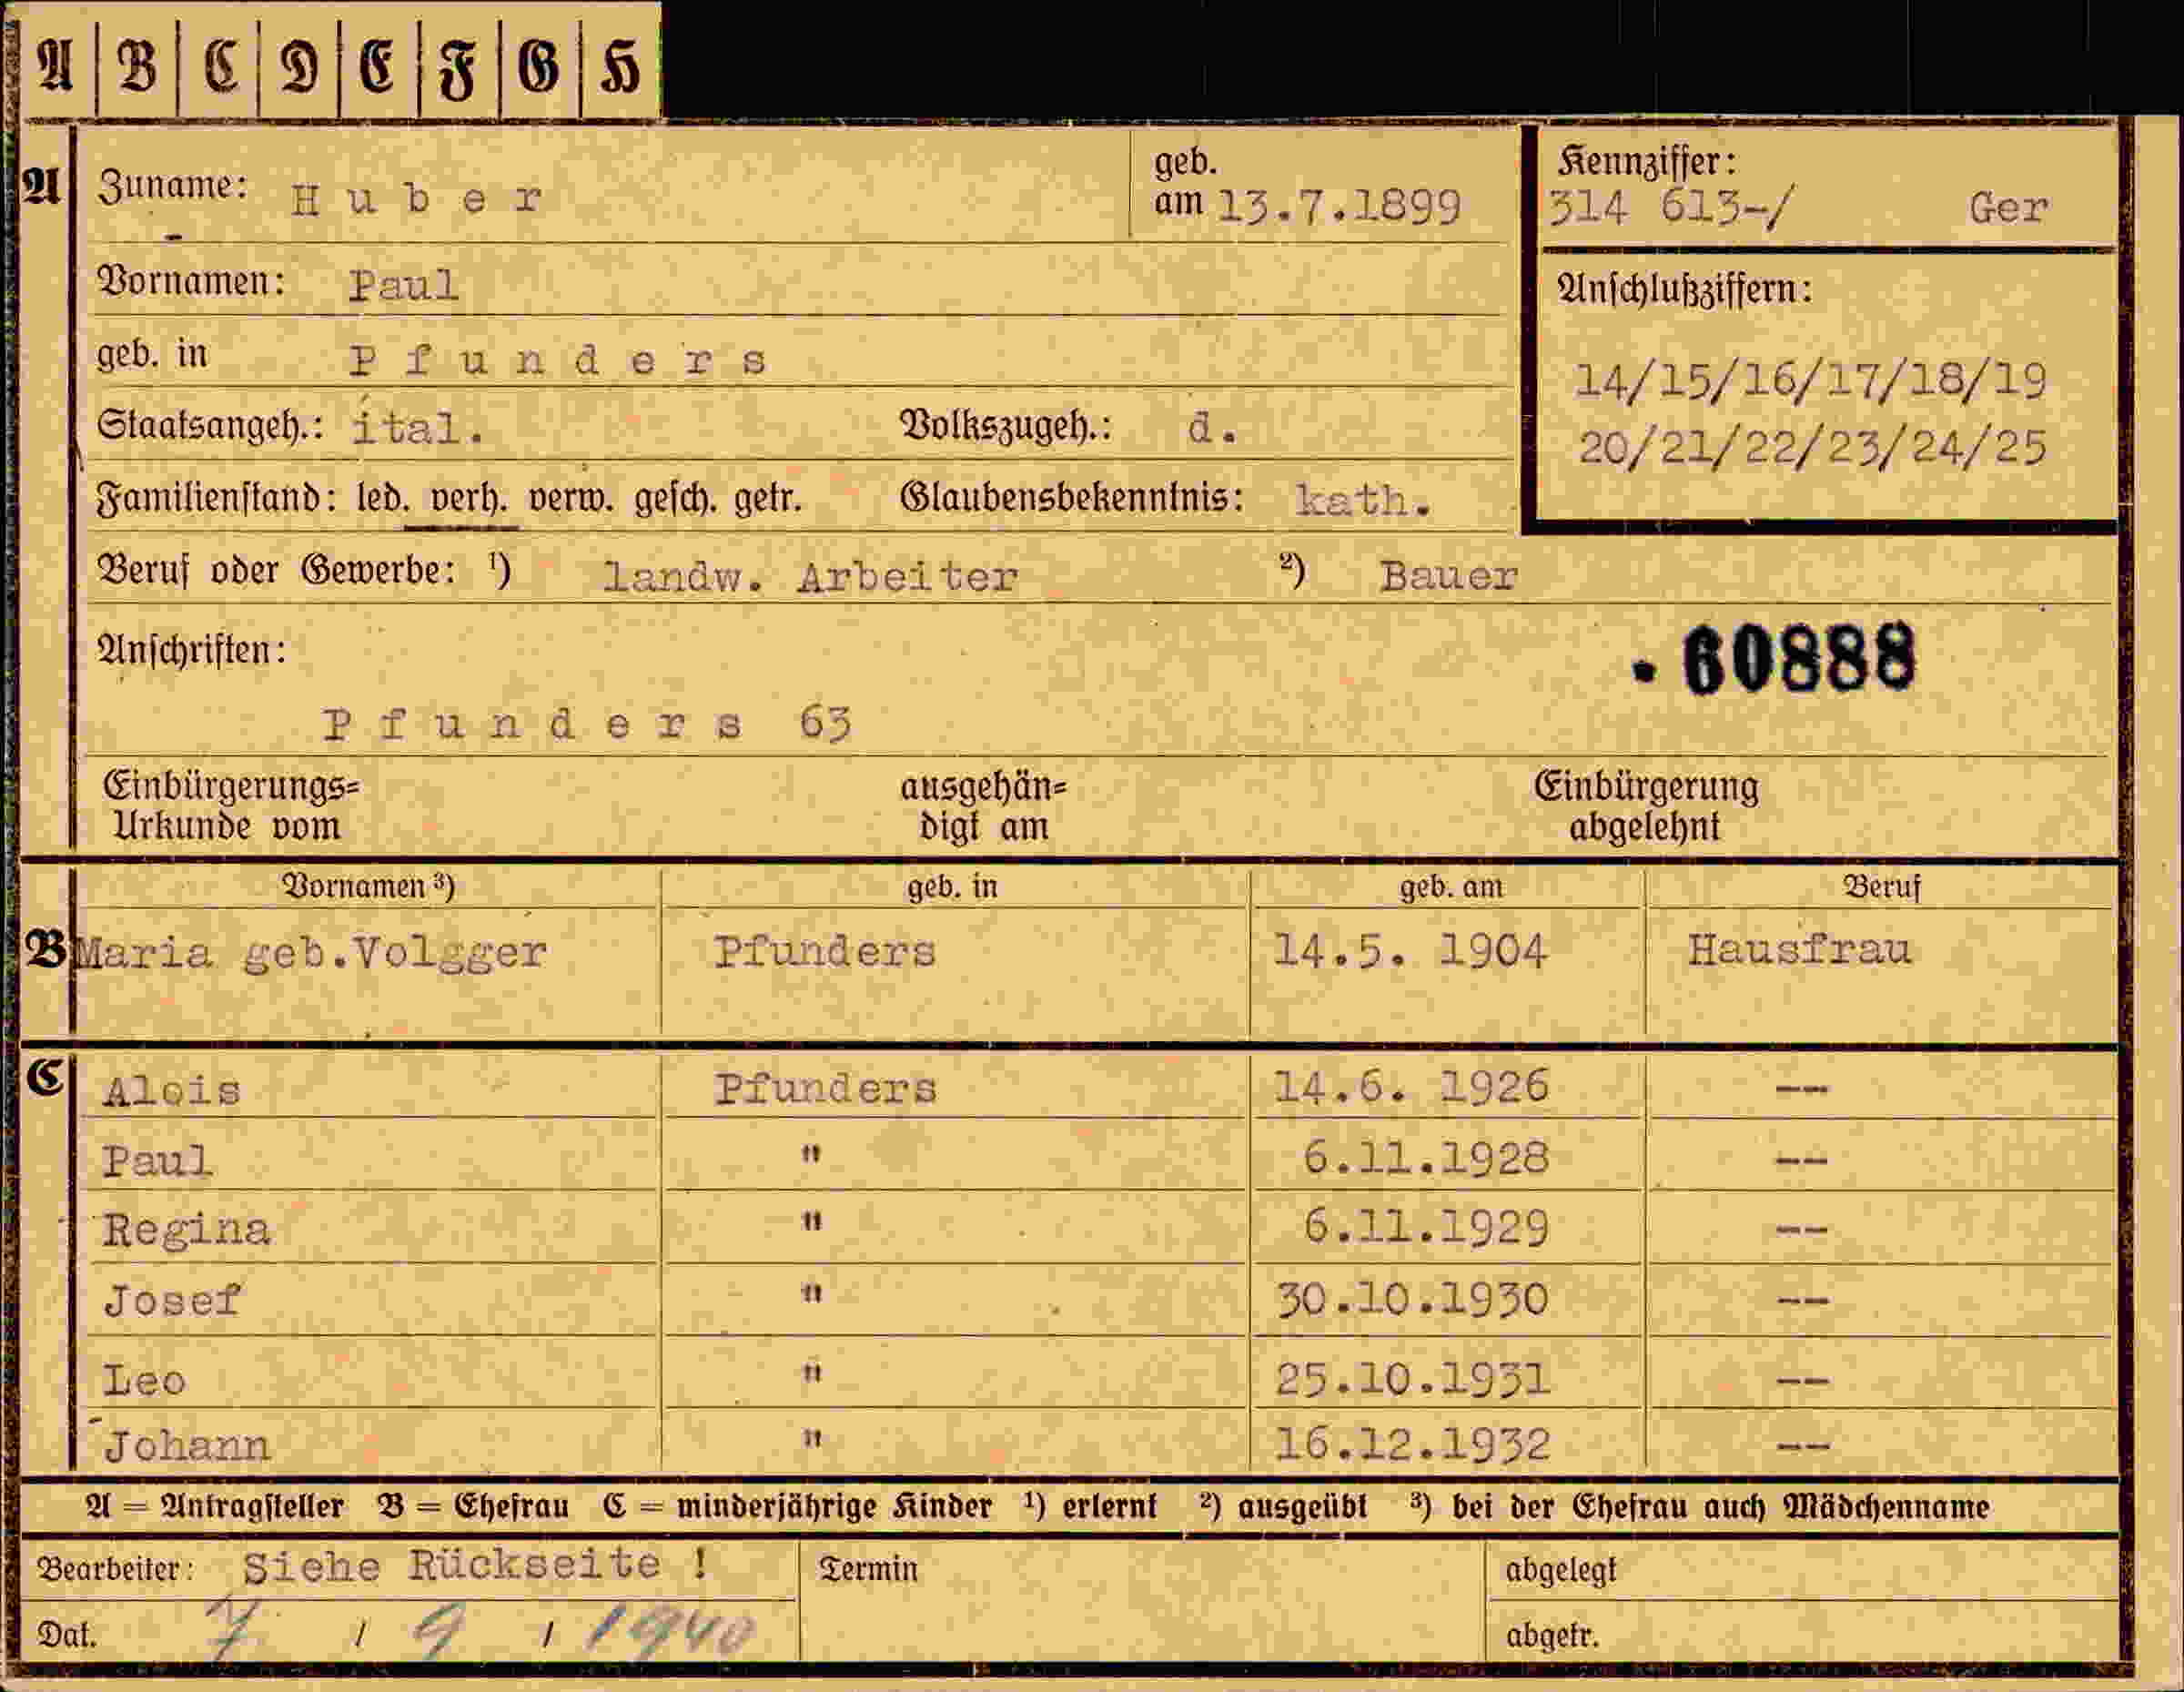 A B C D E F G H
A Zuname: Huber geb. am 13.7.1899
Kennziffer: 314 613-/ Ger
Vornamen: Paul
Anschlußziffern:
geb. in Pfunders
14/15/16/17/18/19
Staatsangeh.: ital. Volkszugeh.: d.
20/21/22/23/24/25
Familienstand: led. verh. verw. gesch. getr. Glaubensbekenntnis: kath.
Beruf oder Gewerbe: ¹) landw. Arbeiter ²) Bauer
Anschriften:
. 60888
Pfunders 63
Einbürgerungs= ausgehän= Einbürgerung
Urkunde vom digt am abgelehnt
Vornamen ³) geb. in geb. am Beruf
B Maria geb.Volgger Pfunders 14.5. 1904 Hausfrau
C Alois Pfunders 14.6. 1926 --
Paul " 6.11.1928 --
Regina " 6.11.1929 --
Josef " 30.10.1930 --
Leo " 25.10.1931 --
Johann " 16.12.1932 --
A = Antragsteller B = Ehefrau C = minderjährige Kinder ¹) erlernt ²) ausgeübt ³) bei der Ehefrau auch Mädchenname
Bearbeiter: Siehe Rückseite ! Termin abgelegt
Dat. 7 / 9 / 1940 abgetr.